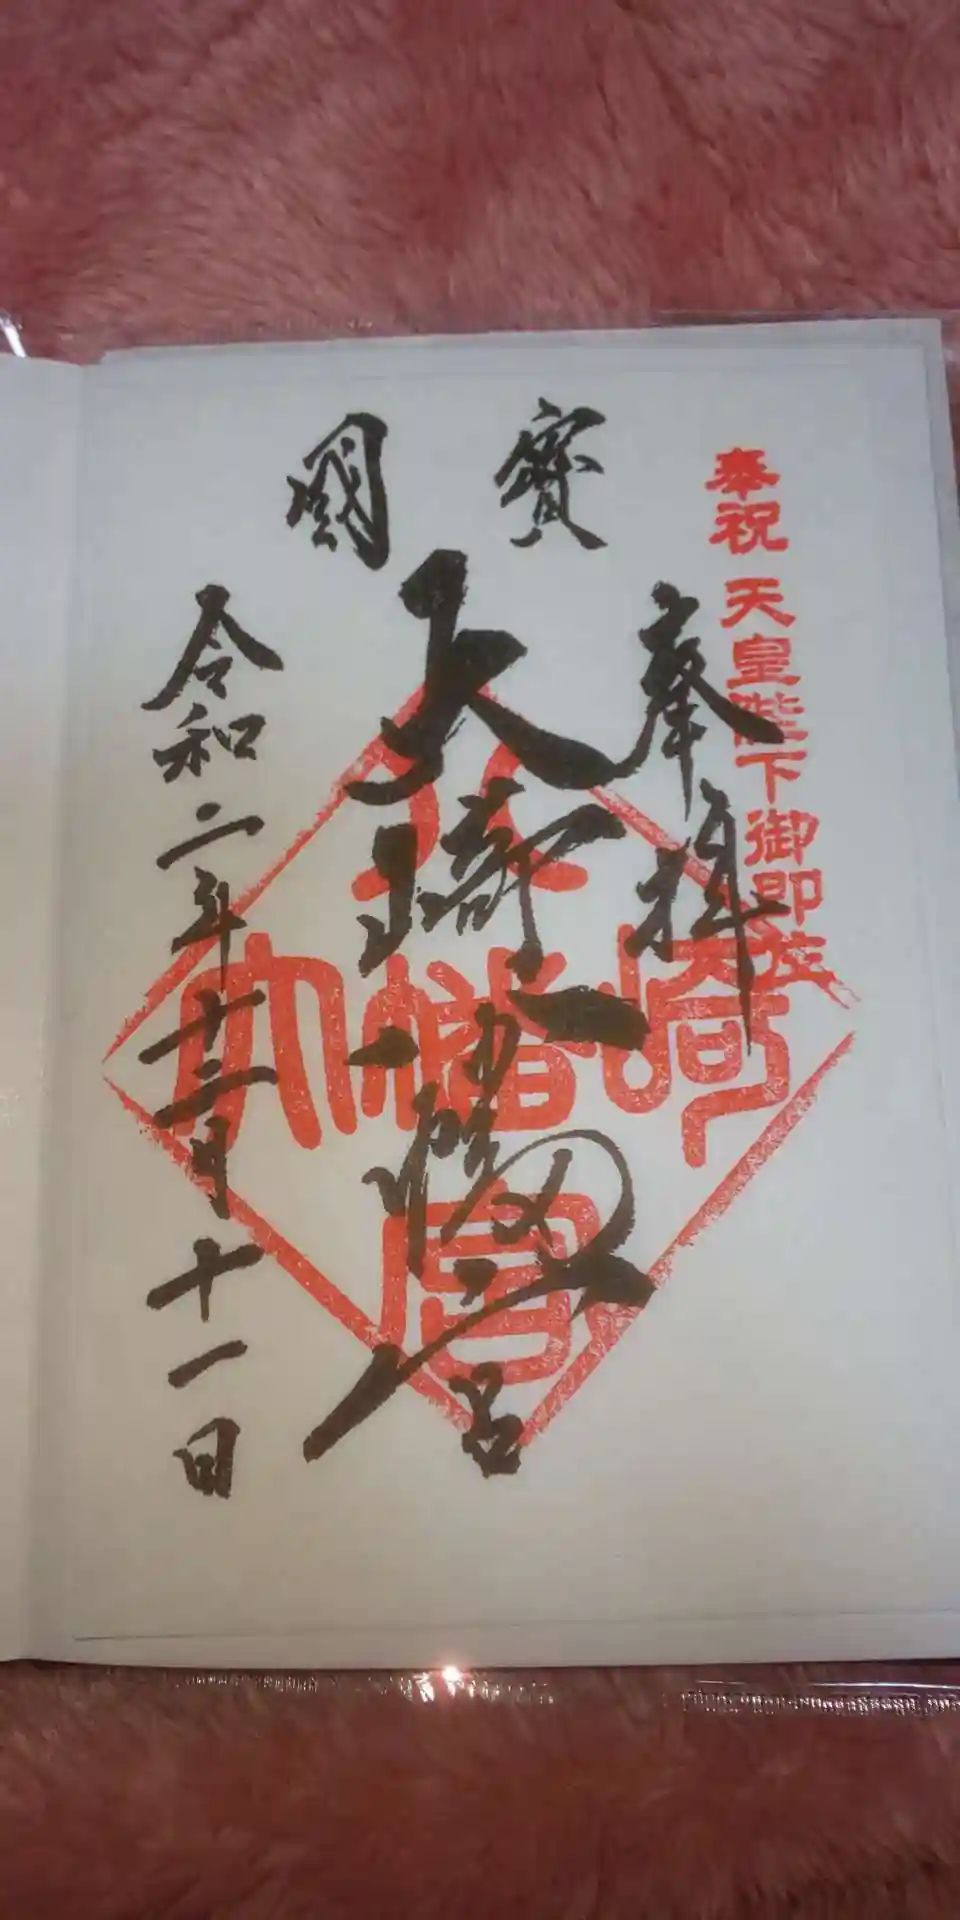 奉祝 天皇陛下御即位
國寶
奉拝
大崎八幡宮
令和二年十二月十一日
大崎八幡宮